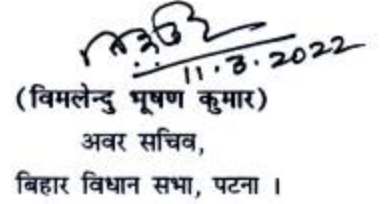 11.3.2022
(विमलेन्दु भूषण कुमार)
अवर सचिव,
बिहार विधान सभा, पटना ।